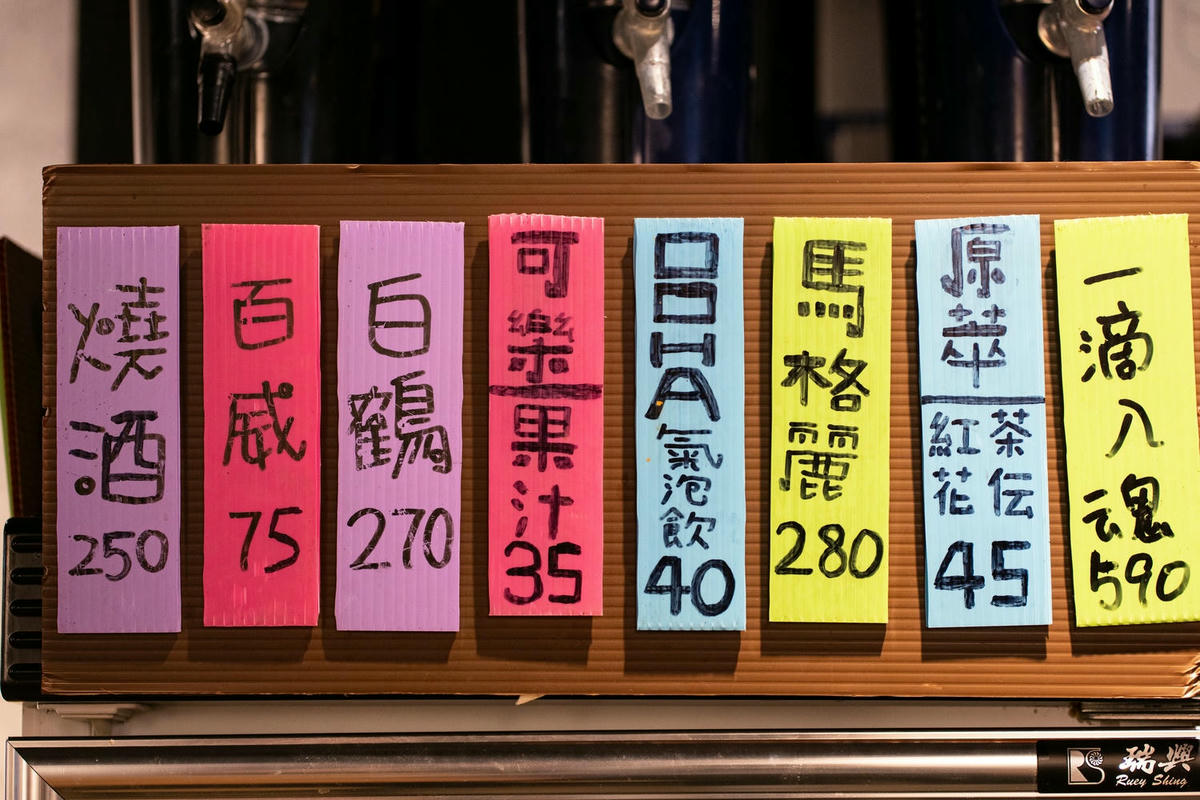 燒酒
250
百威
75
白鶴
270
可樂
果汁
35
OOHA氣泡飲
40
馬格麗
280
原萃
紅茶
花伝
45
一滴入魂
590
RS 瑞興
Ruey Shing